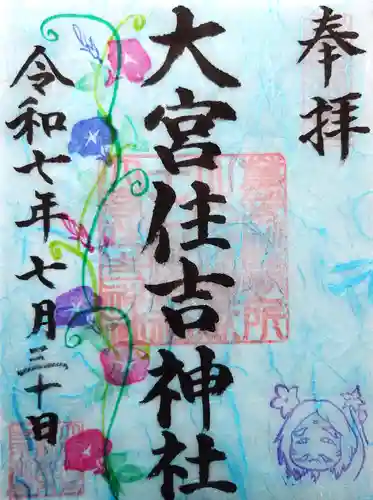 奉拝
大宮住吉神社
令和七年七月三十日